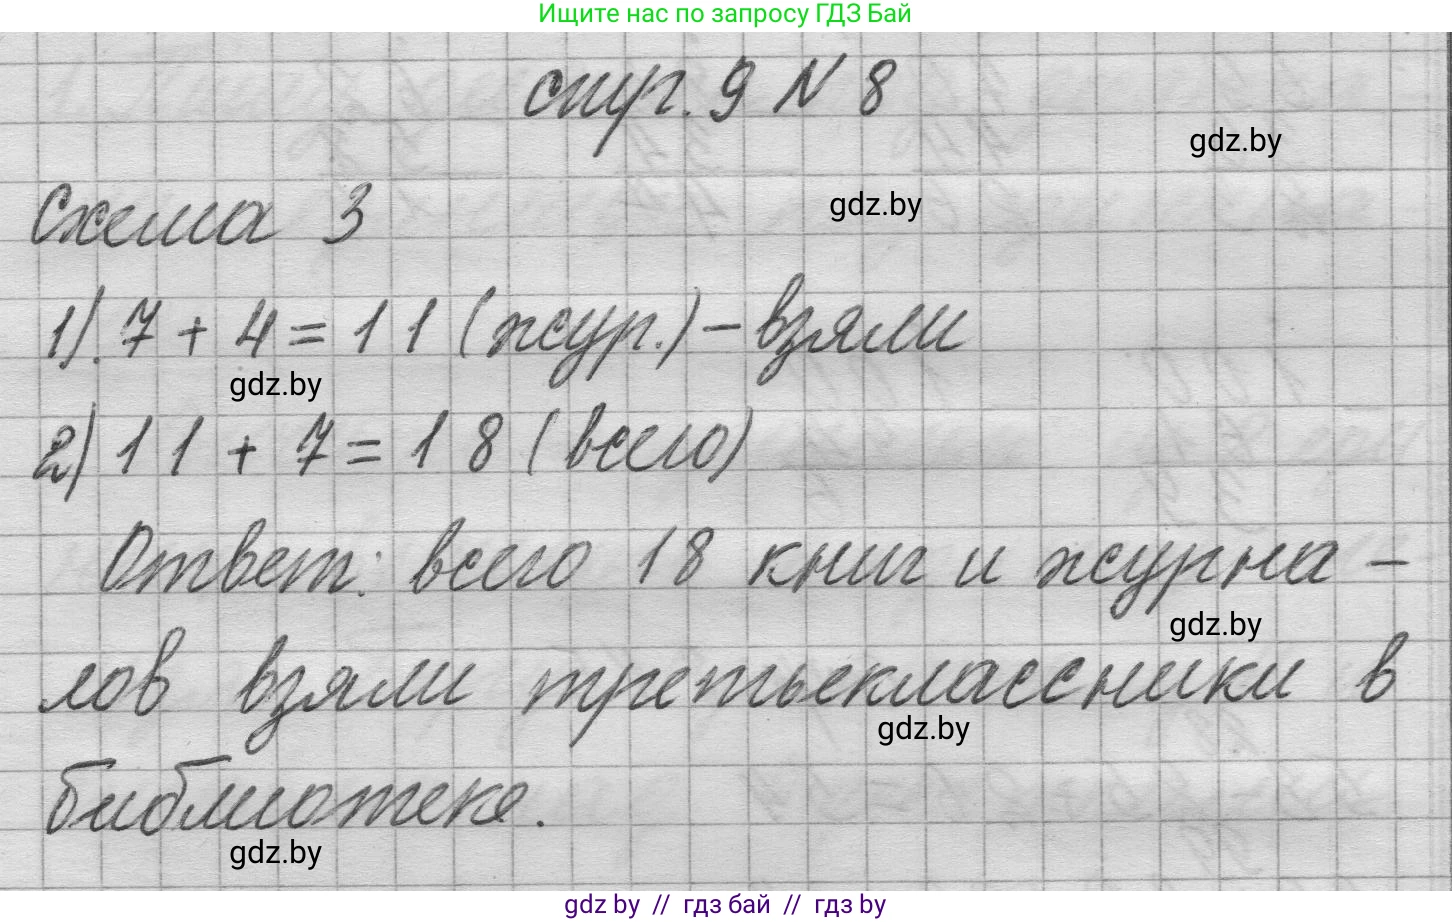 Ищите нас по запросу ГДЗ Бай
стр. 9 N 8
gdz.by
Схема 3
gdz.by
1). 7 + 4 = 11 (жур.) – взяли
gdz.by
2) 11 + 7 = 18 (всего)
Ответ: всего 18 книг и журна-
gdz.by
лов взяли третьеклассники в
gdz.by
библиотеке.
gdz.by
gdz by // гдз бай // гдз by